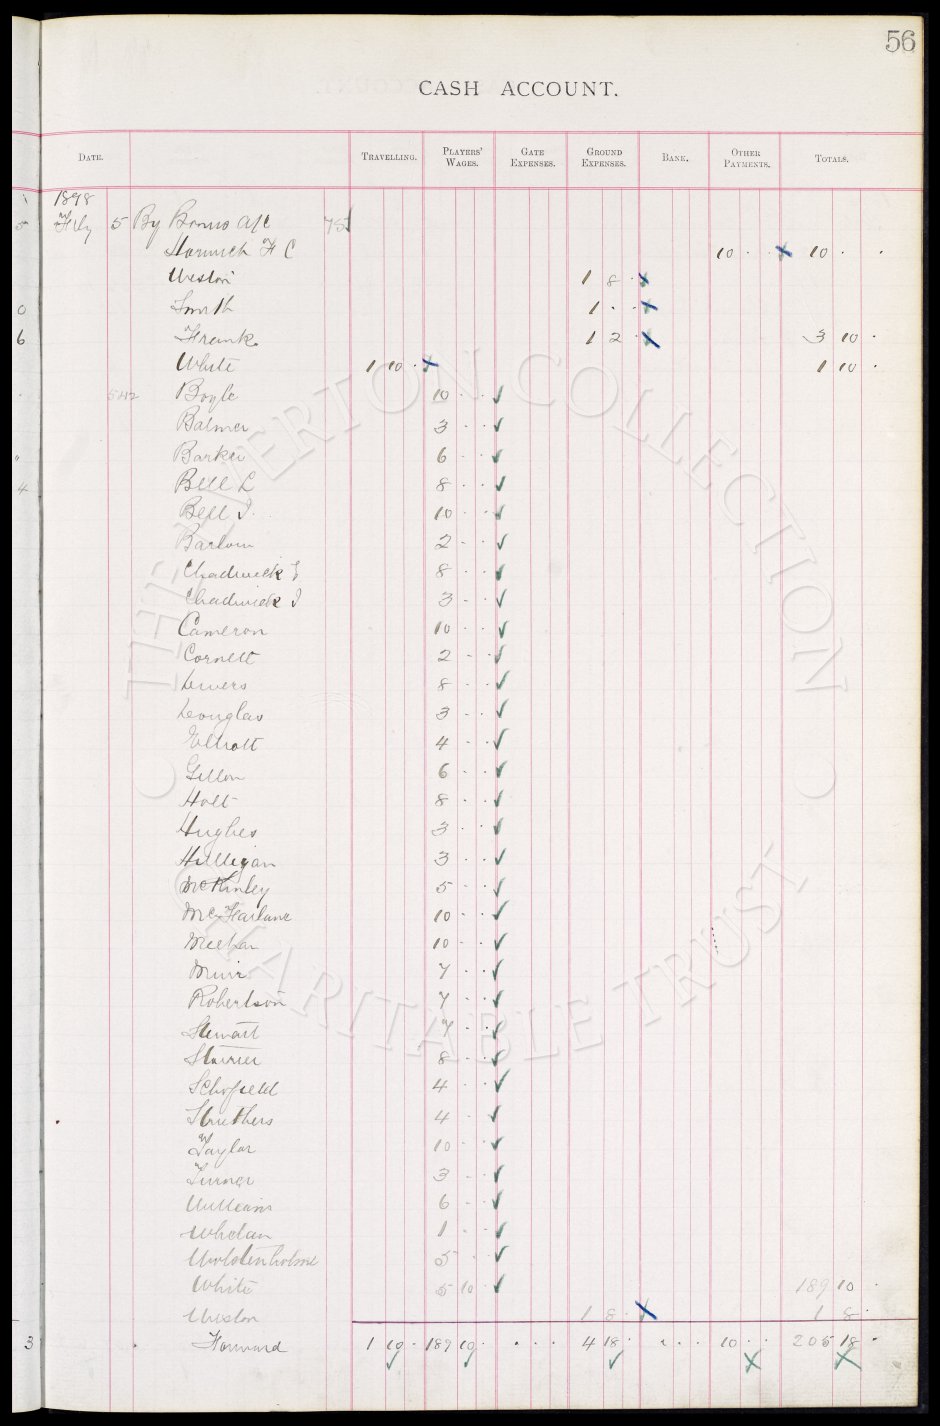 56
CASH ACCOUNT.
DATE. TRAVELLING. PLAYERS' WAGES. GATE EXPENSES. GROUND EXPENSES. BANK. OTHER PAYMENTS. TOTALS.
1898
5 By Bonus a/c 75
F C 10 · · 10 · ·
Weston 1 8 ·
Smith 1 · ·
Frank 1 2 · 3 10 ·
White 1 10 · 1 10 ·
Boyle 10 · ·
Balmer 3 · ·
Barker 6 · ·
Bell L 8 · ·
Bell J 10 · ·
Barlow 2 · ·
Chadwick E 8 · ·
Chadwick J 3 · ·
Cameron 10 · ·
Cornett 2 · ·
Divers 8 · ·
Douglas 3 · ·
Elliott 4 · ·
Gillon 6 · ·
Holt 8 · ·
Hughes 3 · ·
Hulligan 3 · ·
McKinley 5 · ·
McFarlane 10 · ·
Meehan 10 · ·
Muir 7 · ·
Robertson 7 · ·
Stewart 7 · ·
Storrier 8 · ·
Schofield 4 · ·
Struthers 4 · ·
Taylor 10 · ·
Turner 3 · ·
Williams 6 · ·
Whelan 1 · ·
Wolstenholme 5 · ·
White 5 10 · 189 10 ·
Weston 1 8 · 1 8 ·
Forward 1 10 · 189 10 · · · · 4 18 · · · · 10 · · 205 18 ·
THE EVERTON COLLECTION
CHARITABLE TRUST